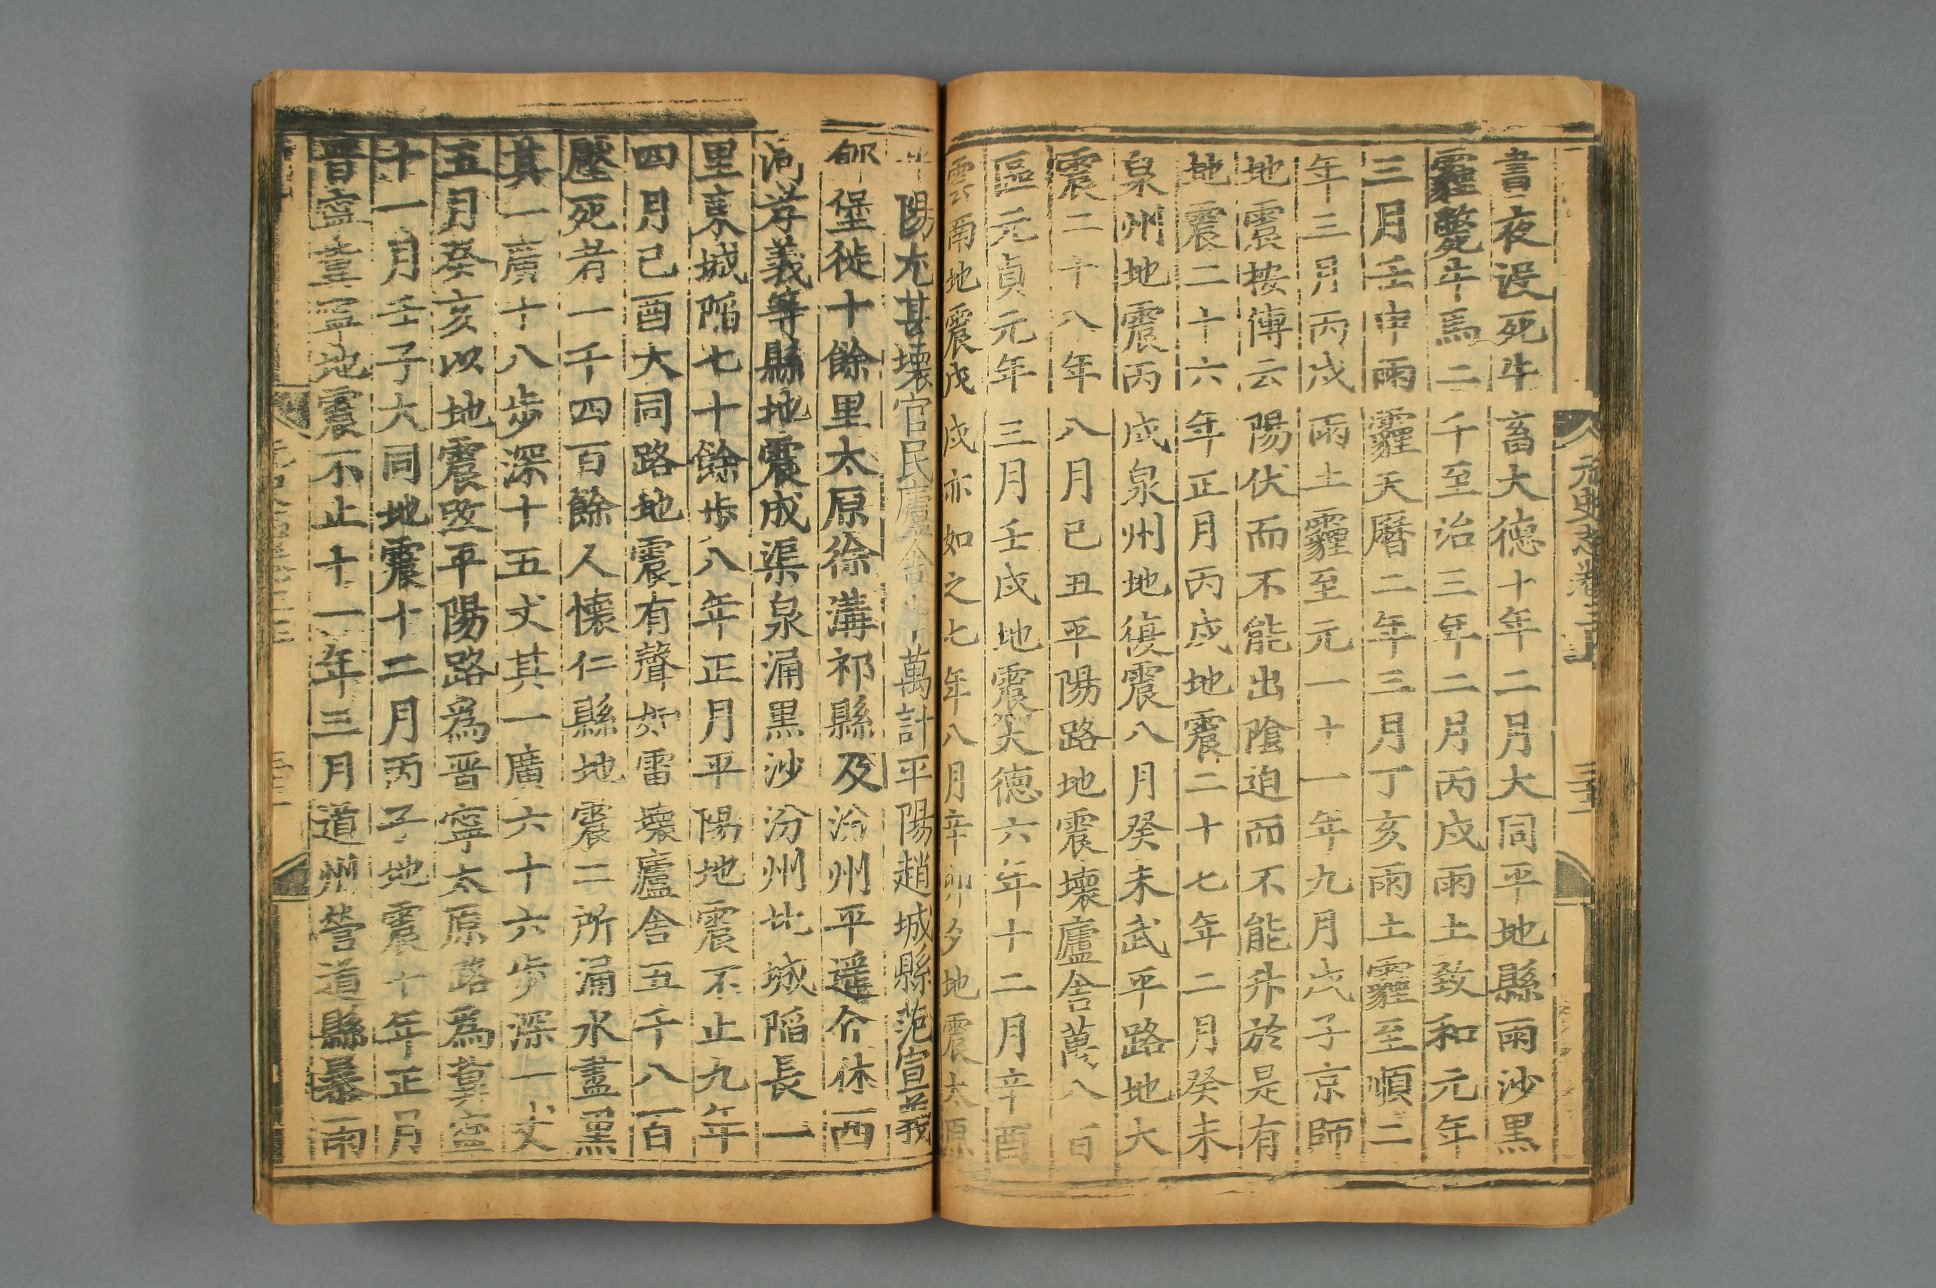 元史志卷三
書夜没死牛畜大德十年二月大同平地縣雨沙黑
霾斃牛馬二千至治三年二月丙戍雨土致和元年
三月壬申雨霾天曆二年三月丁亥雨土霾至順二
年三月丙戍雨土霾至元一十一年九月戊子京師
地震按傳云陽伏而不能出陰迫而不能升於是有
地震二十六年正月丙戍地震二十七年二月癸未
泉州地震丙戍泉州地復震八月癸未武平路地大
震二十八年八月己丑平陽路地震壞廬舍萬八百
區元貞元年三月壬戍地震大德六年十二月辛酉
雲南地震戊戍亦如之七年八月辛卯夕地震太原
陽尤甚壞官民廬舍萬計平陽趙城縣范宣義
郇堡徙十餘里太原徐溝祁縣及汾州平遥介休西
河孝義等縣地震成渠泉涌黑沙汾州北城陷長一
里東城陷七十餘步八年正月平陽地震不止九年
四月己酉大同路地震有聲如雷壞廬舍五千八百
壓死者一千四百餘人懷仁縣地震二所涌水盡黑
其一廣十八步深十五丈其一廣六十六步深一丈
五月癸亥以地震改平陽路爲晉寧太原路爲冀寧
十一月壬子大同地震十二月丙子地震十年正月
晉寧冀寧地震不止十一年三月道州營道縣暴雨